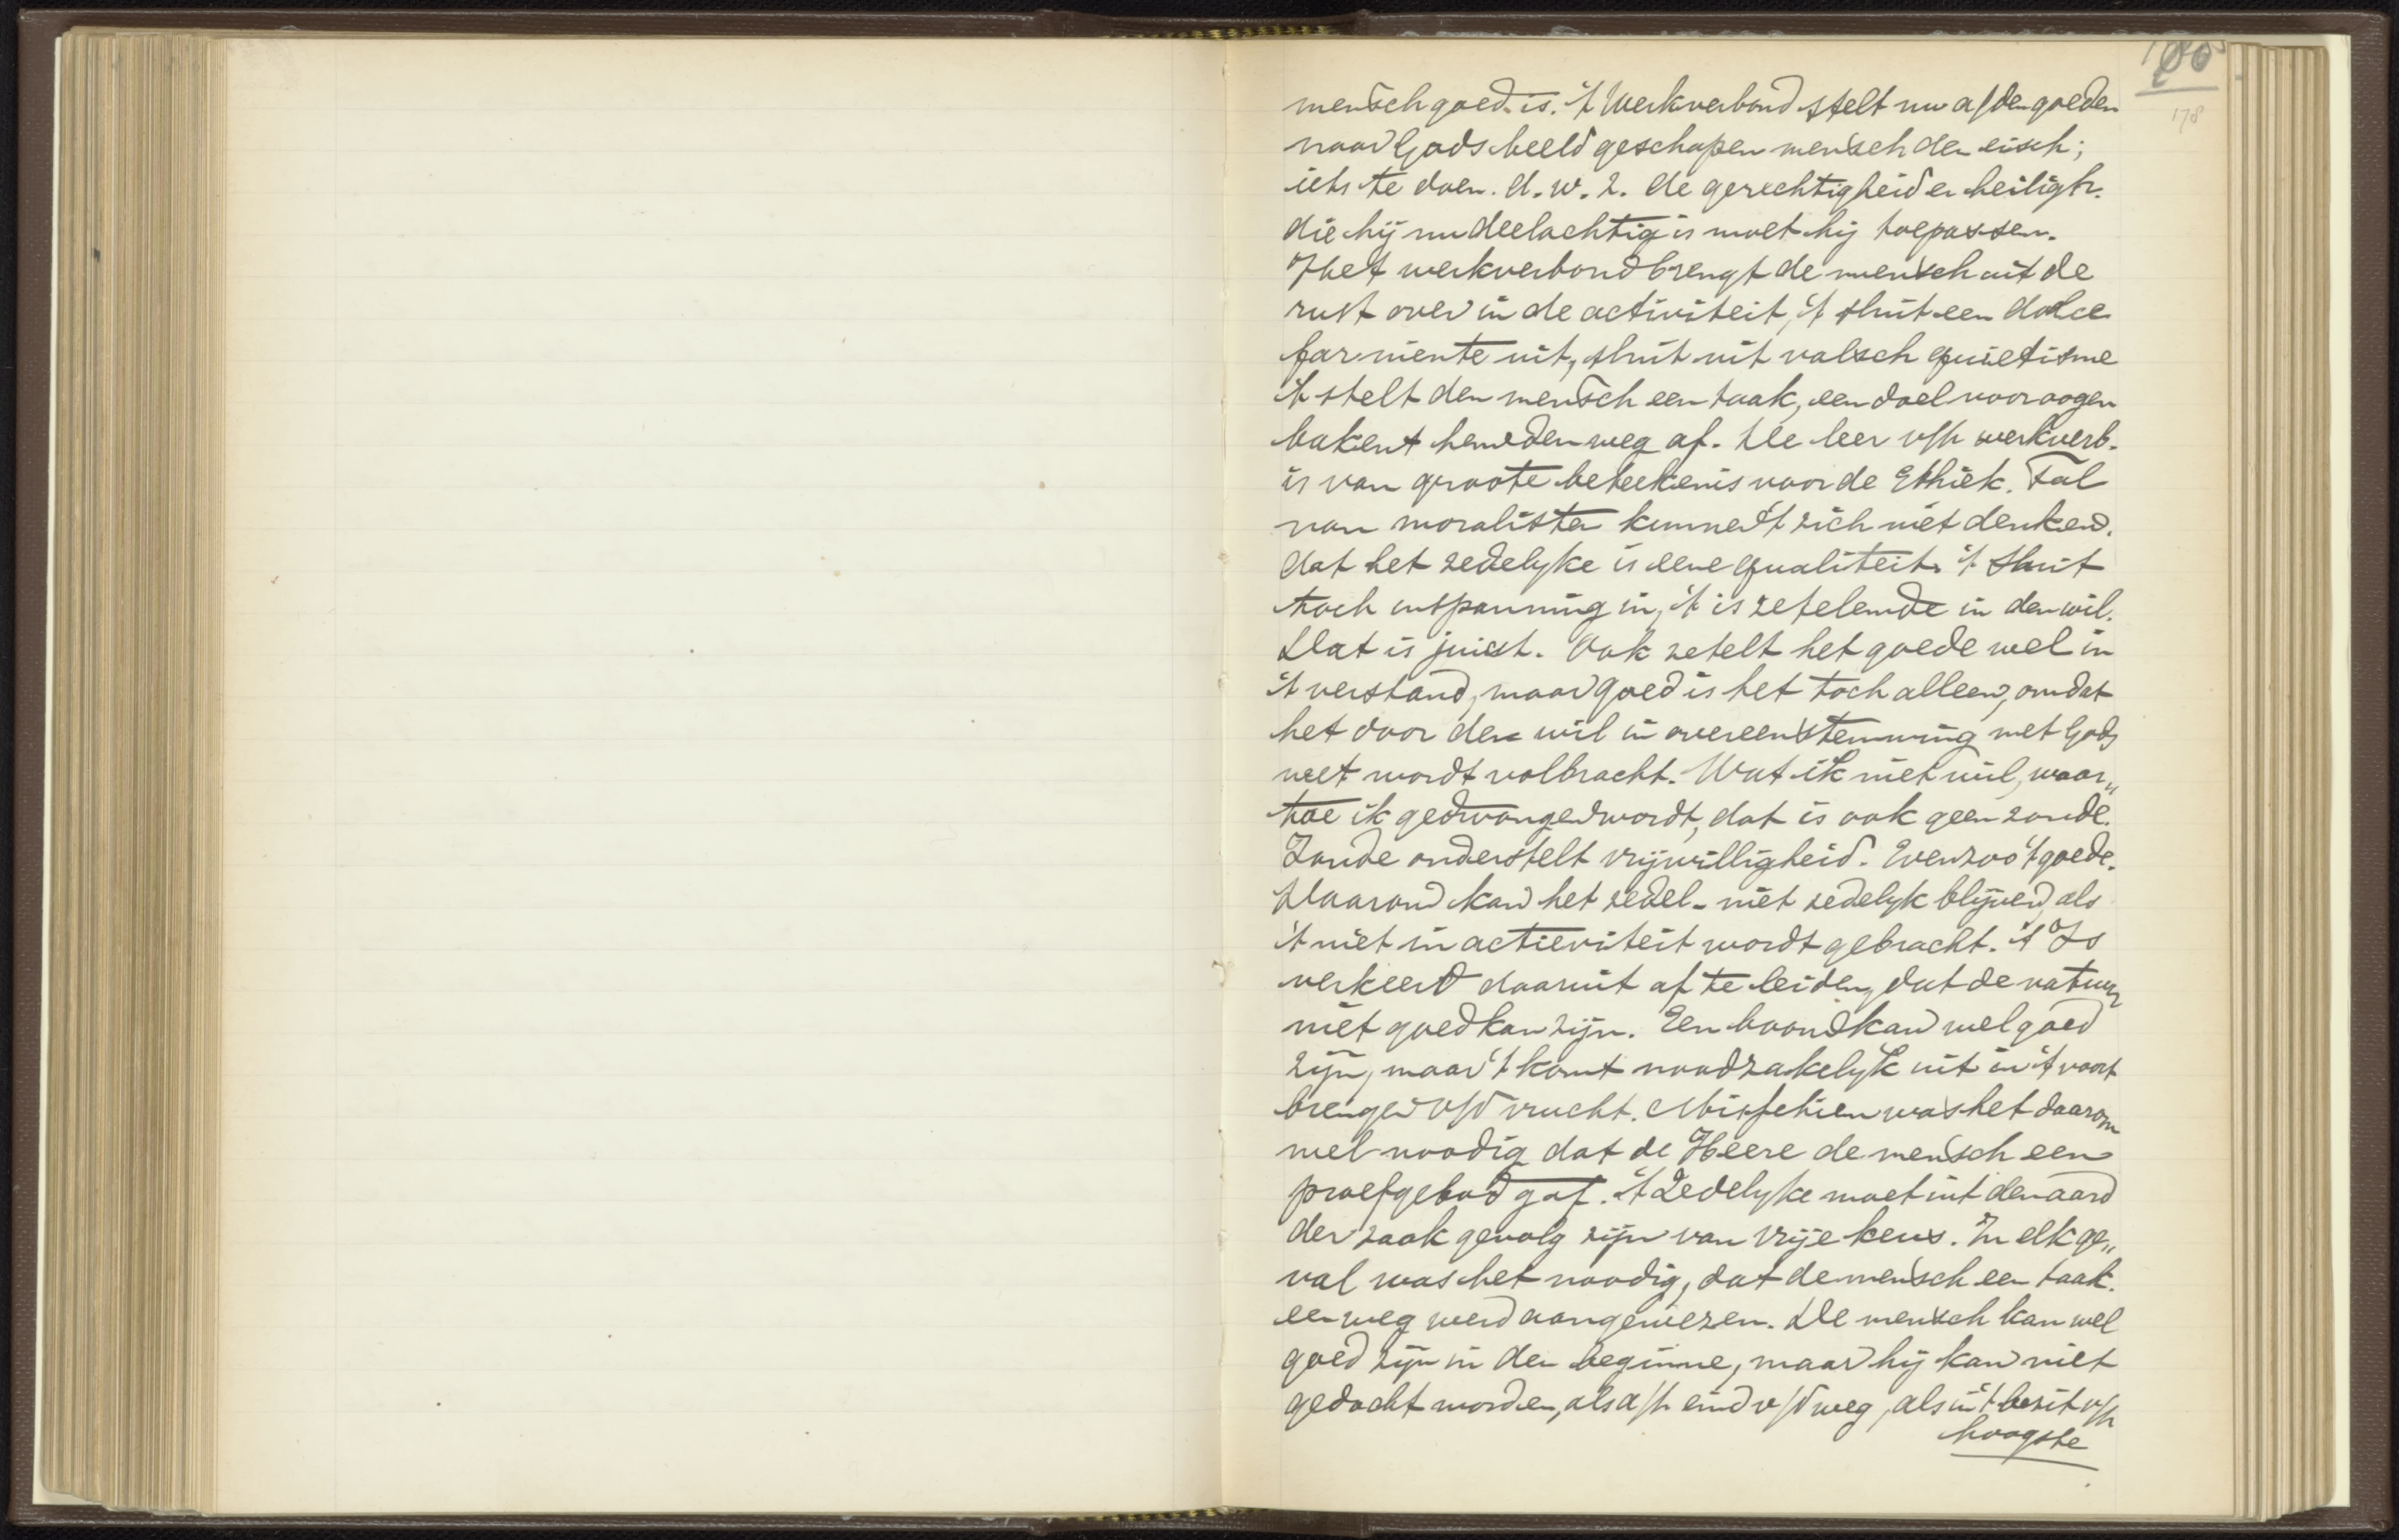 178
mensch goed is. 't Werkverbond stelt nu a/den goeden
naar Gods beeld geschapen mensch den eisch;
iets te doen. d.w.z. de gerechtigheid en heiligh.
die hij nu deelachtig is moet hij toepassen.
Het werkverbond brengt de mensch uit de
rust over in de activiteit, 't sluit een dolce
far niente uit, sluit uit valsch quietisme
't stelt den mensch een taak, een doel voor oogen
bakent hem den weg af. De leer v/h werkverb.
is van groote beteekenis voor de Ethiek. Tal
van moralisten kunnen 't zich niet denken.
dat het zedelyke is eene qualiteit. 't Sluit
toch inspanning in, 't is zetelende in den wil.
Dat is juist. Ook zetelt het goede wel in
't verstand, maar goed is het toch alleen, omdat
het door den wil in overeenstemming met Gods
wet wordt volbracht. Wat ik niet wil, waar„
toe ik gedwongen wordt, dat is ook geen zonde.
Zonde onderstelt vrijwilligheid. Evenzoo 't goede.
Daarom kan het zedel. niet zedelyk blijven, als
't niet in actieviteit wordt gebracht. 't Is
verkeerd daaruit af te leiden, dat de natuur
niet goed kan zijn. Een boom kan wel goed
zijn, maar 't komt noodzakelyk uit in 't voort
brengen v/d vrucht. Misschien was het daarom
wel noodig dat de Heere de mensch een
proefgebod gaf. 't Zedelyke moet uit den aard
der zaak gevolg zijn van vrije keus. In elk ge„
val was het noodig, dat de mensch een taak.
een weg werd aangewezen. De mensch kan wel
goed zijn in den beginne, maar hij kan niet
gedacht worden, als a/h eind v/d weg, als in 't bezit v/h
hoogste